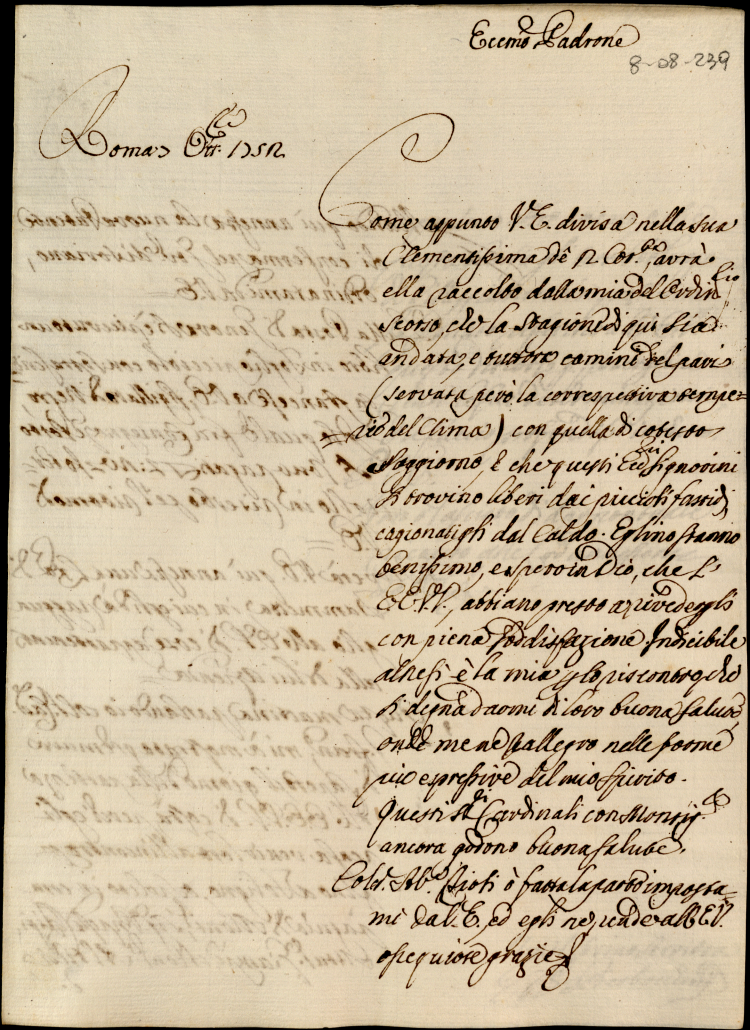 Eccmo Padrone
8-08-239
Roma 7 Ott. 1752
Come appunto V. E. divisa nella sua
Clementissima dè 2 Cor.te, avrà
ella raccolto dalla mia del Ordin.rio
scorso, che la Stagione di qui sia
andata, e tuttora camini del pari
(servata però la correspettiva tempe-
rie del Clima) con quella di cotesto
Soggiorno, è che questi Ecc.mi Signorini
si trovino liberi dai piccioli fastidj
cagionatigli dal Caldo. Eglino stanno
benissimo, e spero in Dio, che l'
E. E. V. V., abbiano presto a rivedergli
con piena soddisfazione. Indicibile
altresì è la mia p lo riscontro, che
si degna darmi di loro buona salute,
onde me ne rallegro nelle forme
più espressive del mio spirito.
Questi SS.ri Cardinali con Monsig.r
ancora godono buona salute.
Col Sr. Ab.e fatta la parte imposta-
mi dal. E., ed egli ne rende all'E. V.
ossequiose grazie